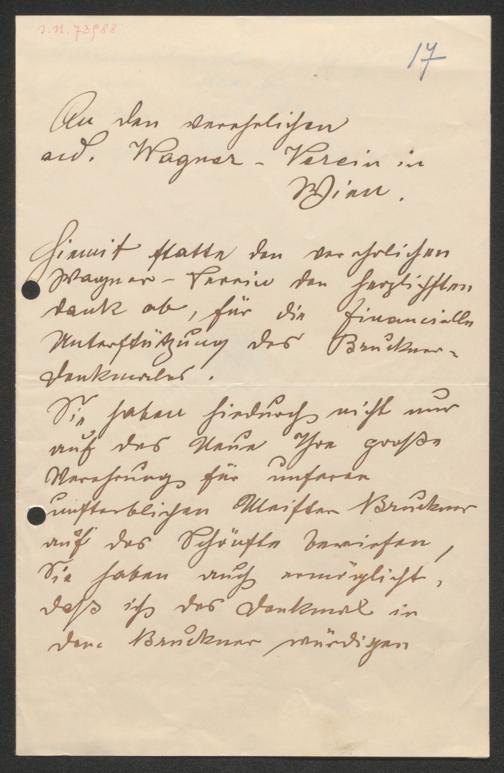 I.N. 73988
17
An den verehrlichen
akd. Wagner-Verein in
Wien.
Hiemit statte den verehrlichen
Wagner-Verein den herzlichsten
Dank ab, für die financielle
Unterstützung des Bruckner-
Denkmales.
Sie haben hiedurch nicht nur
auf das Neue Ihre große
Verehrung für unseren
unsterblichen Meister Bruckner
auf das Schönste bewiesen,
Sie haben auch ermöglicht,
daß ich das Denkmal in
Bruckner würdigen